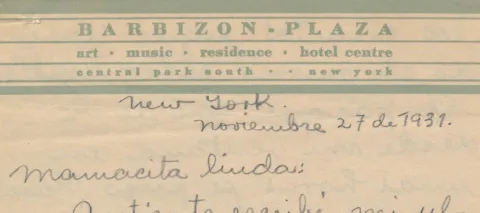 BARBIZON-PLAZA
art · music · residence · hotel centre
central park south · · new york
New York.
Noviembre 27 de 1931.
Mamacita linda: